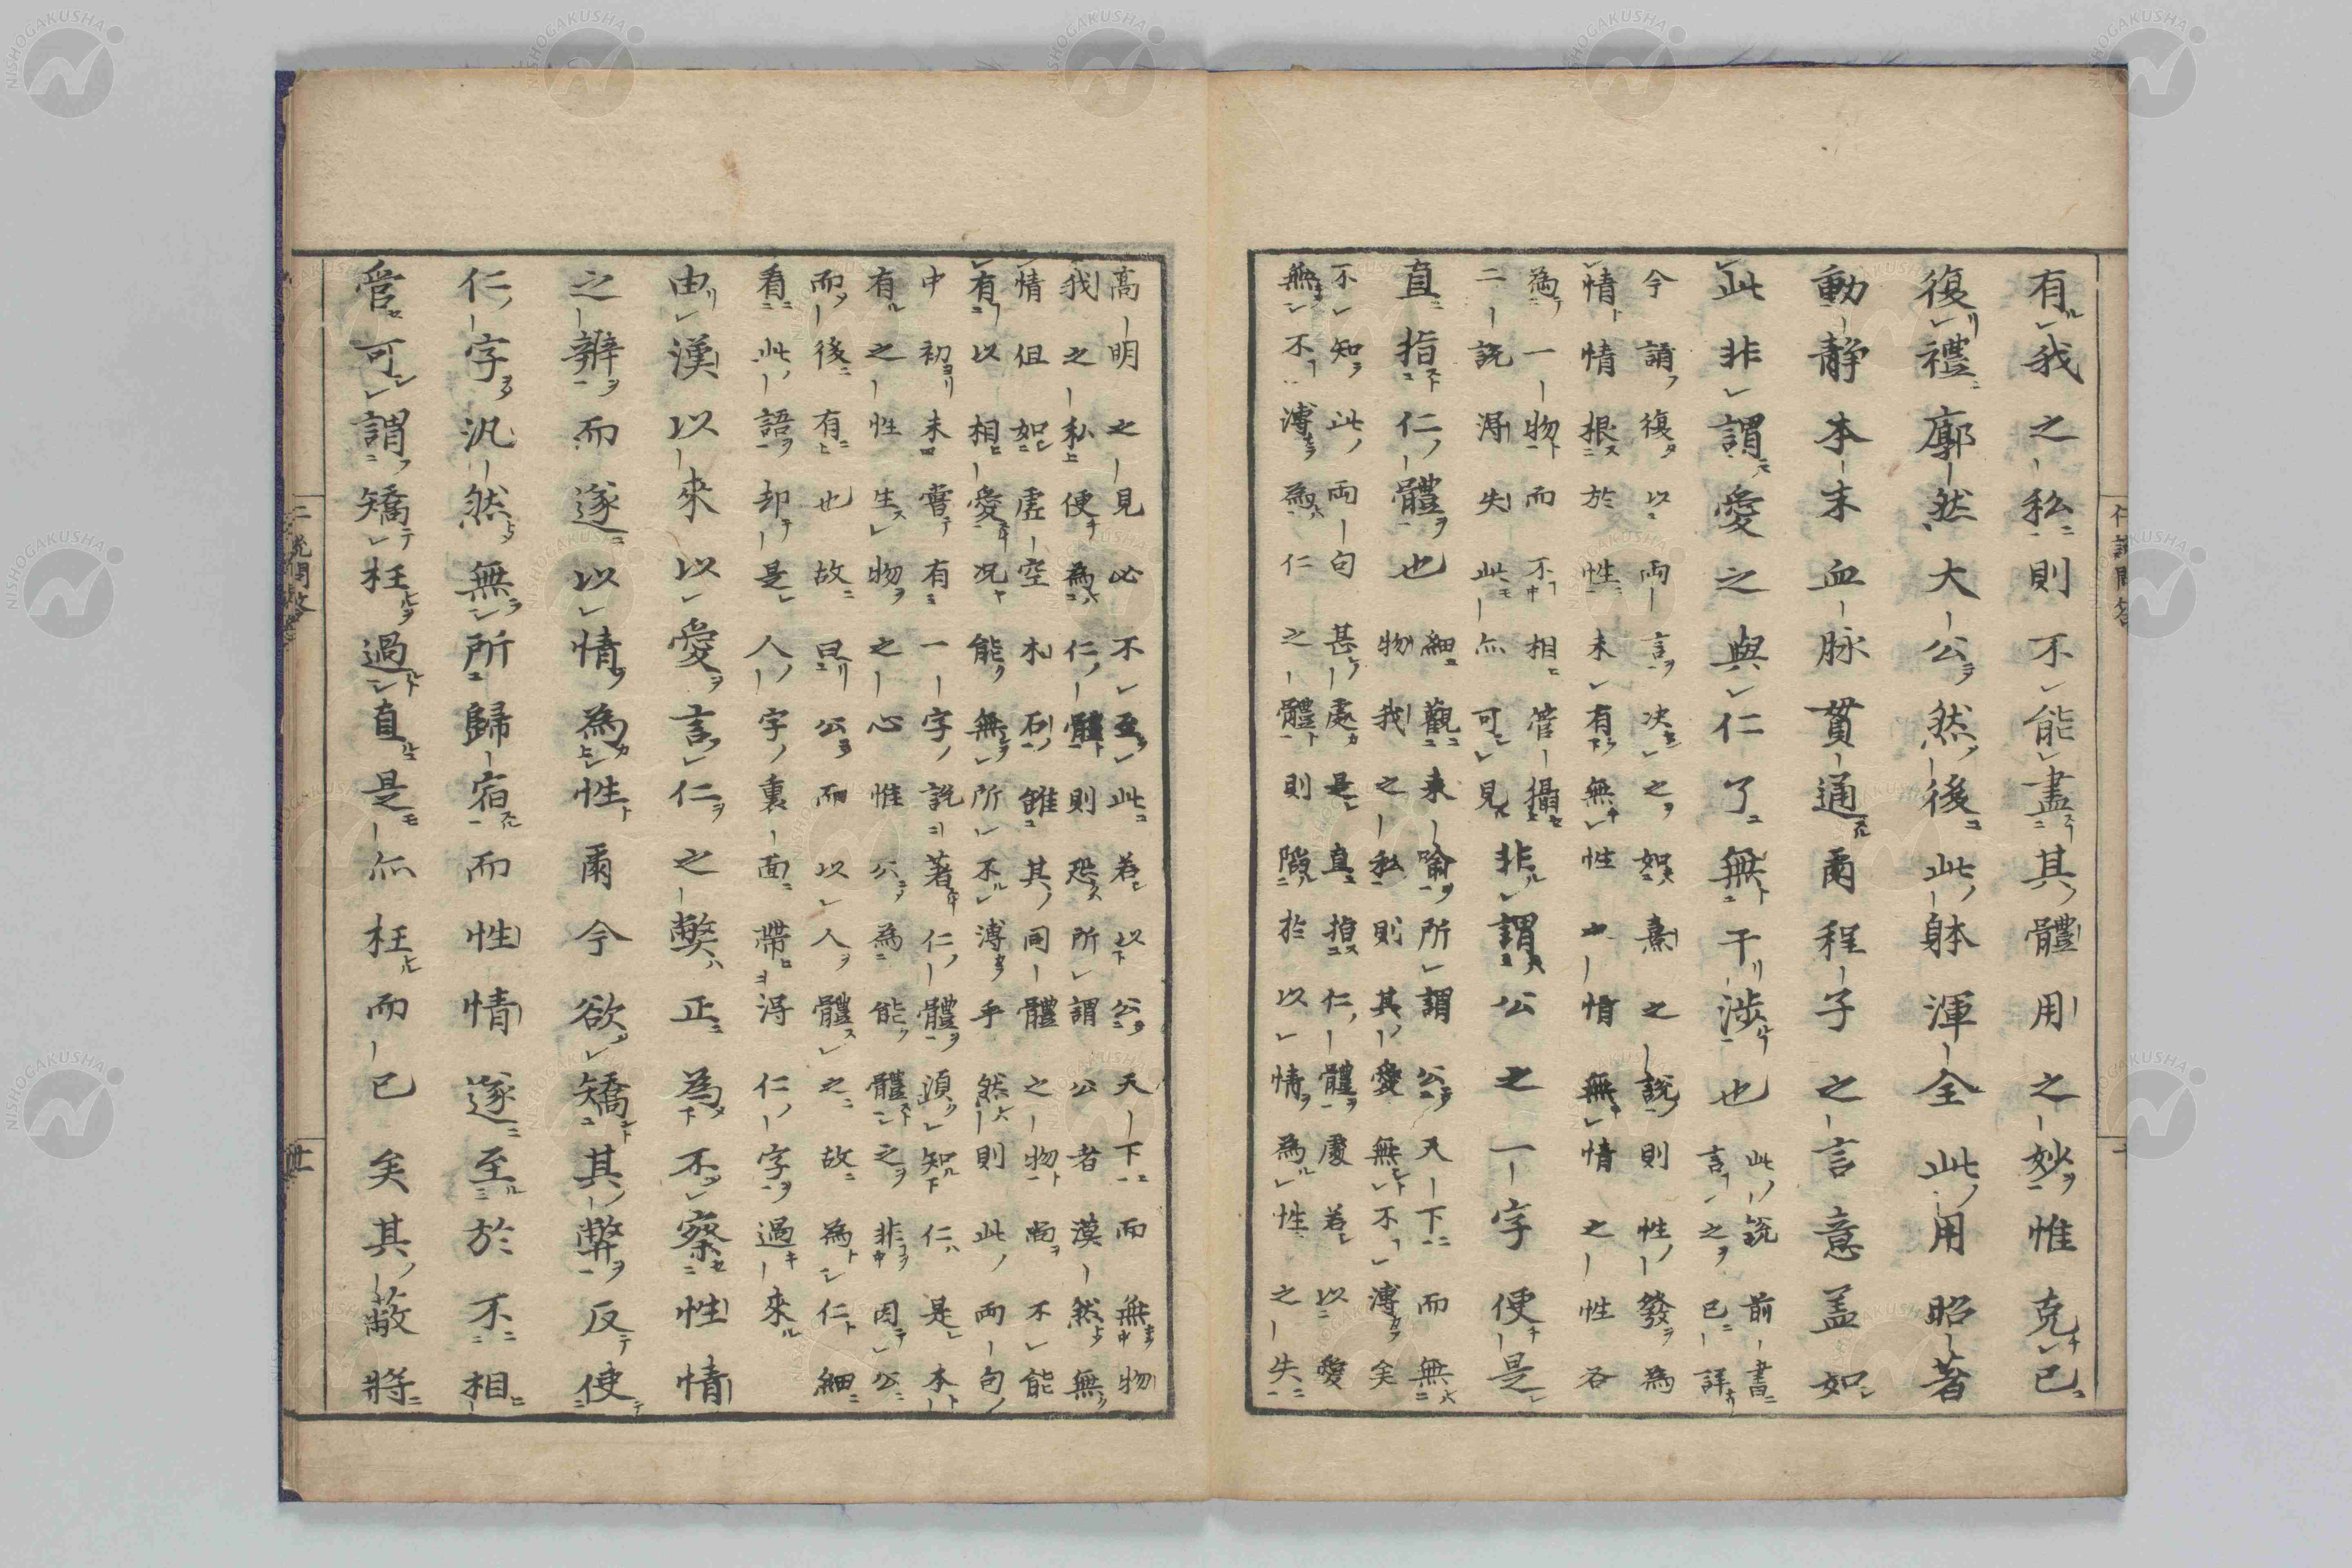 有我之私則不能盡其體用之妙惟克己
復禮廓然大公然後此躰渾全此用昭著
動静本末血脉貫通爾程子之言意盖如
此非謂愛之與仁了無干涉也此說前書
言之已詳
今請復以兩言决之如熹之說則性發為
情情根於性未有無性之情無情之性各
為一物而不相管攝
二說得失此亦可見非謂公之一字便是
直指仁體也細觀来喻所謂公天下而無
物我之私則其愛無不溥矣
不知此兩句甚處是直指仁體處若以愛
無不溥為仁之體則陷於以情為性之失
高明之見必不至此若以公天下而無物
我之私便為仁體則恐所謂公者漠然無
情但如虚空木石雖其同體之物尚不能
有以相愛况能無所不溥乎然則此兩句
中初未嘗有一字說著仁體須知仁是本
有之性生物之心惟公為能體之非因公
而後有也故曰公而以人體之故為仁細
看此語却是人字裏面帶得仁字過來
由漢以來以愛言仁之弊正為不察性情
之辨而遂以情為性爾今欲矯其弊反使
仁字汎然無所歸宿而性情遂至於不相
管可謂矯枉過直是亦枉而已矣其蔽將